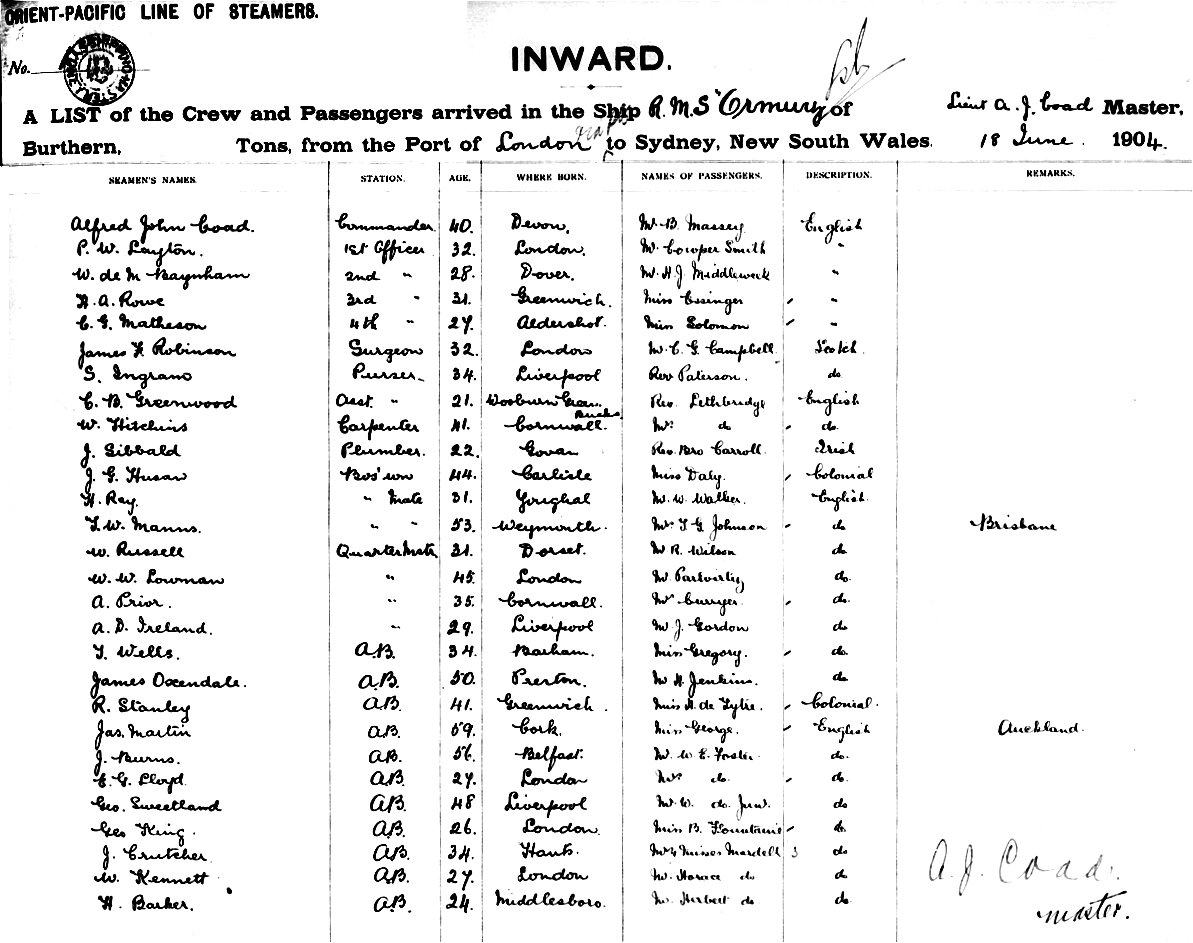 ORIENT-PACIFIC LINE OF STEAMERS.
No.
INWARD.
A LIST of the Crew and Passengers arrived in the Ship R.M.S "Ormuz of Lieut A. J. Coad Master,
Burthern, Tons, from the Port of London to Sydney, New South Wales. 18 June. 1904.
SEAMEN'S NAMES. STATION. AGE. WHERE BORN. NAMES OF PASSENGERS. DESCRIPTION. REMARKS.
Alfred John Coad. Commander 40. Devon. Mr B. Massey English
P. W. Layton. 1st Officer 32. London. Mr Cowper Smith "
W. de M. Baynham 2nd " 28. Dover. Mr H.J. Middleweek "
H. A. Rowe 3rd " 31. Greenwich. Miss Essinger "
C. G. Matheson 4th " 27. Aldershot. Miss Solomon "
James F. Robinson Surgeon 32. London Mr C. G. Campbell Scotch
S. Ingram Purser 34. Liverpool Rev Paterson. do
C. B. Greenwood Asst. " 21. Wooburn Green Bucks. Rev. Lethbridge English
W. Hitchins Carpenter 41. Cornwall. Mrs do do.
J. Sibbald Plumber. 22. Govan Rev. Bro Carroll. Irish
J. G. Husan Bos'un 44. Carlisle Miss Daly. Colonial
H. Ray. " Mate 31. Youghal Mr. W. Walker. English
T. W. Manns. " " 53. Weymouth. Mrs T G Johnson do Brisbane
W. Russell QuarterMate 31. Dorset. Mr R. Wilson do
W. W. Lowman " 45. London Mr do.
A. Prior. " 35. Cornwall. Mrs Curryer. do.
A. D. Ireland. " 29. Liverpool Mr J. Gordon do
T. Wells. A.B. 34. Barham. Miss Gregory. do.
James Oxendale. A.B. 50. Preston. Mr H. Jenkins. do
R. Stanley A.B. 41. Greenwich. Miss H. de Colonial.
Jas. Martin A.B. 59. Cork. Miss George. English Auckland.
J. Burns. A.B. 56. Belfast. Mr. W. E. Forster do.
E. G. Lloyd. A.B. 27. London Mrs do. do.
Geo. Sweetland A.B. 48 Liverpool Mr. W. do. Jun. do
Geo King. A.B. 26. London. Miss B. Fountaine do
J. Crutcher A.B. 34. Hants. Mrs & Misses Mardell 3 do
W. Kennett A.B. 27. London Mr. Horace do do
H. Barker. A.B. 24. Middlesboro. Mr. Herbert do do
A. J. Coad.
master.